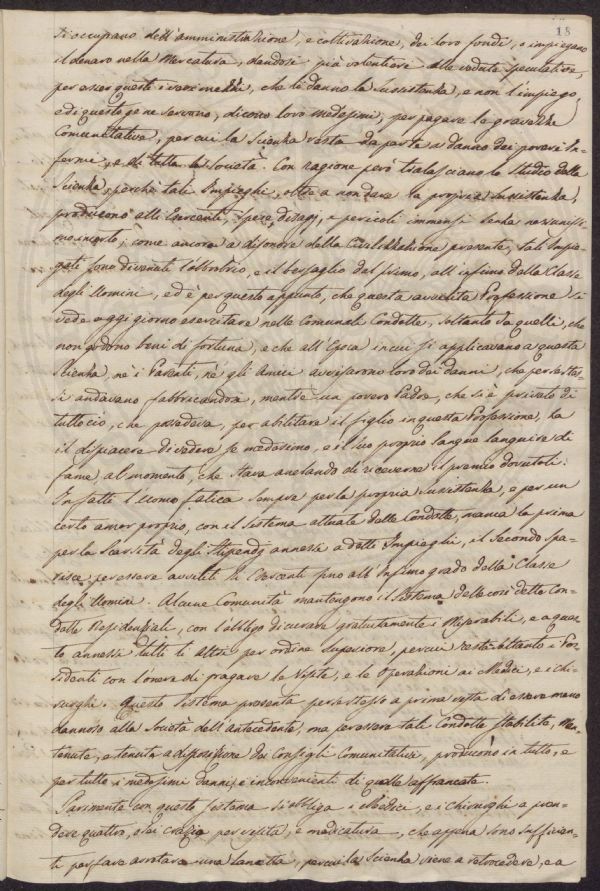 18
si occupano dell'amministrazione, e coltivazione, dei loro fondi, o impiegano
il denaro nella Mercatura, dandosi più volentieri alle vedute speculative,
per esser questi i veri medii, che li danno la sussistenza, e non l'impiego,
e di questo se ne servono, dicono loro medesimi, per pagare le gravezze
Comunitative, per cui la Scienza resta da parte a danno dei poveri In-
fermi, e di tutta la Società. Con ragione però tralasciano lo Studio della
Scienza, perchè tali Impieghi, oltre a non dare la propria sussistenza,
producono alli Esercenti, spese, disagi, e pericoli immensi senza nessunissi-
mo incerto; come ancora a disonore della Civilizzazione presente, tali Impie-
gati sono divenuti l'obbrobrio, e il bersaglio del primo, all'infimo della Classe
degli Uomini, ed è per questo appunto, che questa avvilita Professione si
vede oggi giorno esercitare nelle Comunali Condotte, soltanto da quelli, che
non godono beni di fortuna, e che all'Epoca in cui si applicavano a questa
Scienza, nè i Parenti, nè gli Amici avvisarono loro dei danni, che per se stes-
si andavano fabbricandosi, mentre un povero Padre, che si è privato di
tutto ciò, che possedeva, per abilitare il figlio in questa Professione, ha
il dispiacere di vedere se medesimo, e il suo proprio sangue languire di
fame, al momento, che stava anelando di riceverne il premio dovutoli:
Infatti l'Uomo fatica sempre per la propria sussistenza, e per un
certo amor proprio, con il sistema attuale delle Condotte, manca la prima
per la scarsità degli Stipendj annessi a dette Impieghi, il secondo spa-
risce per essere avviliti li Esercenti fino all'Infimo grado della Classe
degli Uomini. Alcune Comunità mantengono il sistema delle così dette Con-
dotte Residenziali, con l'obbligo di curare gratuitamente i Miserabili, e a ques-
to annessi tutti li altri per ordine superiore, per cui restà soltanto i Pos-
sidenti con l'onere di pagare le Visite, e le operazioni ai Medici, e i Chi-
rurghi. Questo sistema presenta per se stesso a prima vista di essere meno
dannoso alla Società dell'Antecedente, ma per essere tali Condotte stabilite, Man-
tenute, e tenute a disposizione dei Consigli Comunitativi, producono in tutto, e
per tutto i medesimi danni, e inconvenienti di quelle affrancate.
Parimente con questo sistema si obbliga i Medici, e i Chirurghi a pren-
dere quattro, o sei crazie per visita, e medicatura, che appena sono sufficien-
ti per fare arrotare una lancetta, per cui la Scienza viene a retrocedere, e a